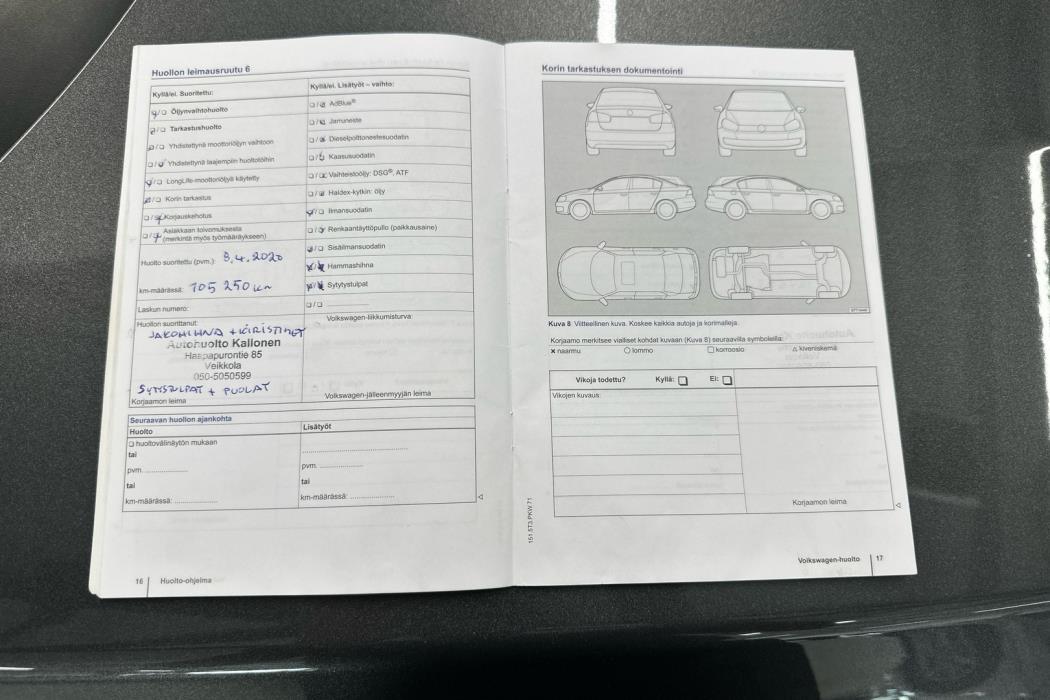 Huollon leimausruutu 6
Kyllä/ei. Suoritettu:
❑/❑ Öljynvaihtohuolto
❑/❑ Tarkastushuolto
❑/❑ Yhdistettynä moottoriöljyn vaihtoon
❑/❑ Yhdistettynä laajempiin huoltotöihin
❑/❑ LongLife-moottoriöljyä käytetty
❑/❑ Korin tarkastus
❑/❑ Korjauskehotus
❑/❑ Asiakkaan toivomuksesta
(merkintä myös työmääräykseen)
Huolto suoritettu (pvm.): 8.4.2020
km-määrässä: 105 250 km
Laskun numero:
Huollon suorittanut:
JAKOHIHNA + KIRISTIMET
Autohuolto Kallonen
Haapapurontie 85
Veikkola
050-5050599
SYTYSTULPAT + PUOLAT
Korjaamon leima
Kyllä/ei. Lisätyöt – vaihto:
❑/❑ AdBlue®
❑/❑ Jarruneste
❑/❑ Dieselpolttonestesuodatin
❑/❑ Kaasusuodatin
❑/❑ Vaihteistoöljy: DSG®, ATF
❑/❑ Haldex-kytkin: öljy
❑/❑ Ilmansuodatin
❑/❑ Renkaantäyttöpullo (paikkausaine)
❑/❑ Sisäilmansuodatin
❑/❑ Hammashihna
❑/❑ Sytytystulpat
❑/❑
Volkswagen-liikkumisturva:
Volkswagen-jälleenmyyjän leima
Seuraavan huollon ajankohta
Huolto
❑ huoltovälinäytön mukaan
tai
pvm.
tai
km-määrässä:
Lisätyöt
pvm.
tai
km-määrässä:
16 Huolto-ohjelma
Korin tarkastuksen dokumentointi
Kuva 8 Viitteellinen kuva. Koskee kaikkia autoja ja korimalleja.
Korjaamo merkitsee vialliset kohdat kuvaan (Kuva 8) seuraavilla symboleilla:
× naarmu ○ lommo ❑ korroosio △ kiveniskemä
Vikoja todettu? Kyllä: ❑ Ei: ❑
Vikojen kuvaus:
Korjaamon leima
151.5T3.PKW.71
Volkswagen-huolto 17